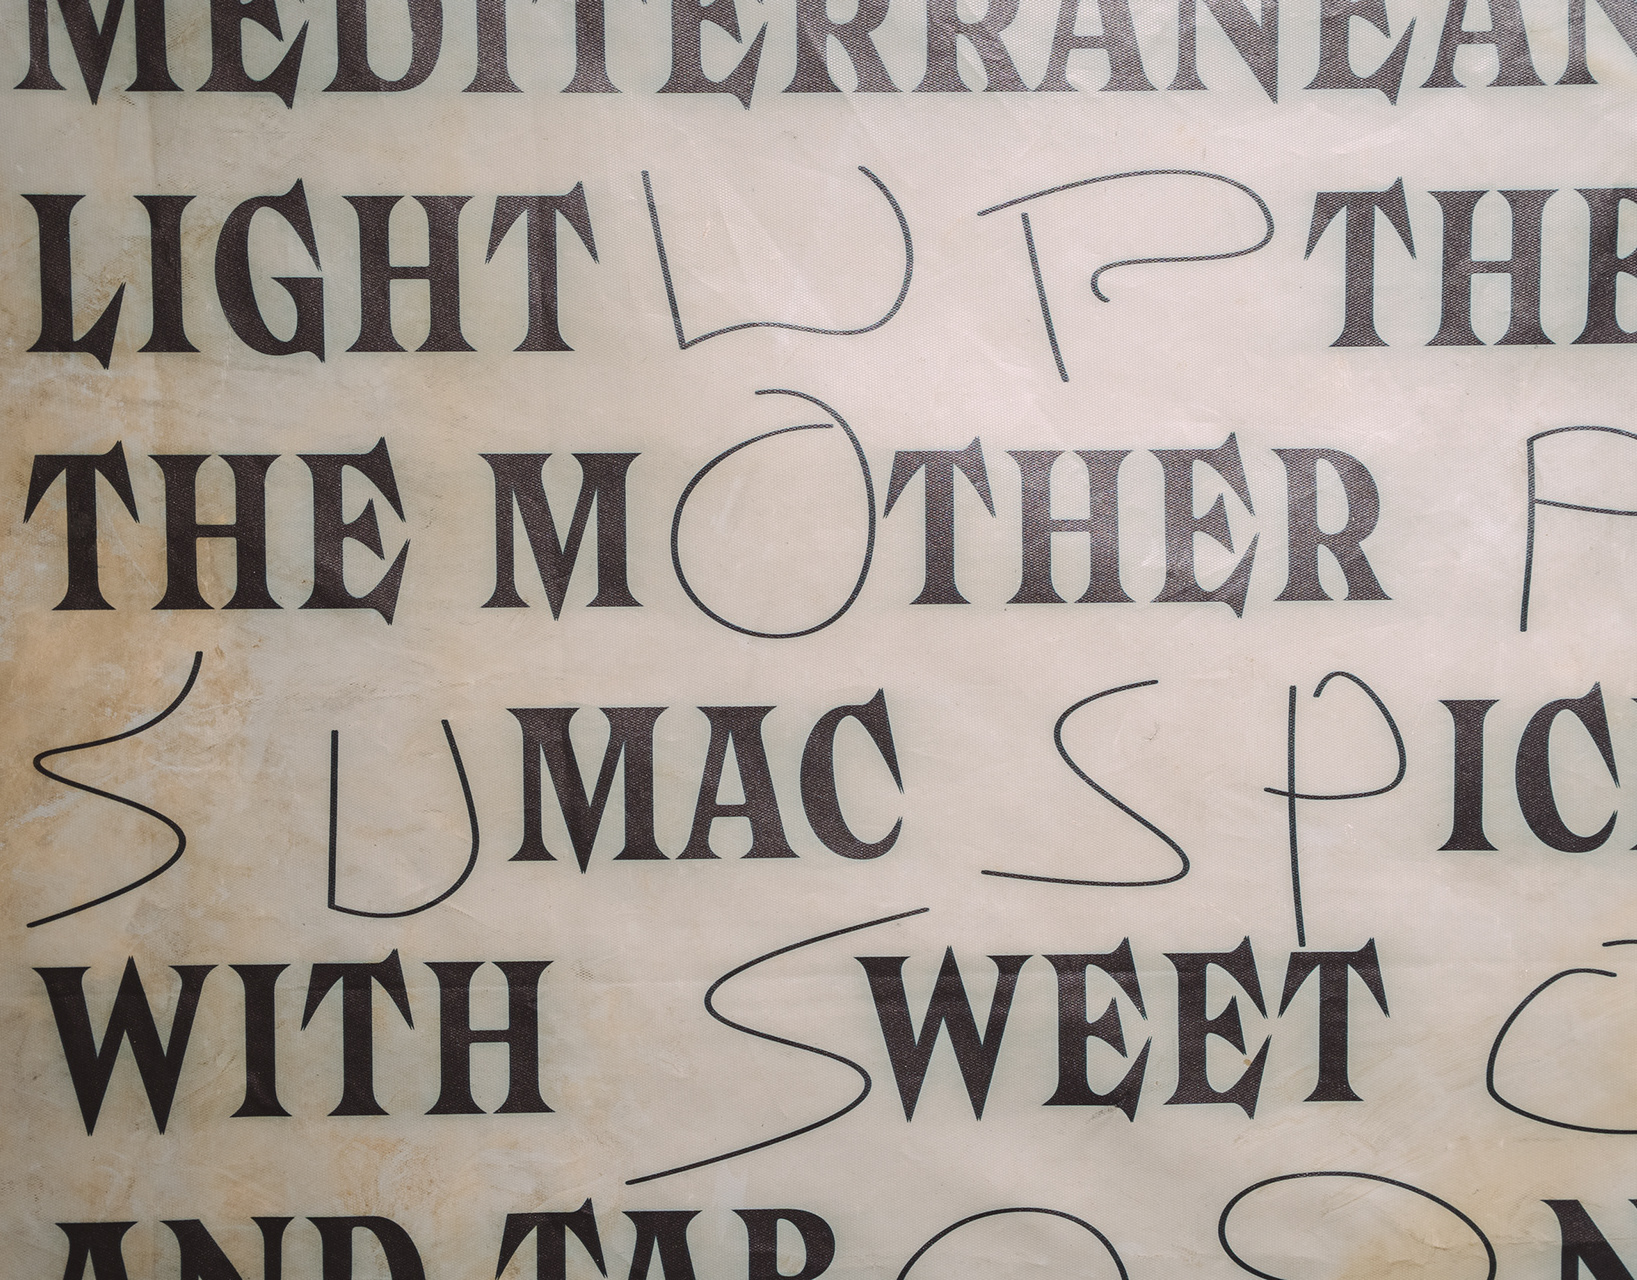 MEDITERRANEAN
LIGHT UP THE
THE MOTHER
SUMAC SPIC
WITH SWEET
AND TAB